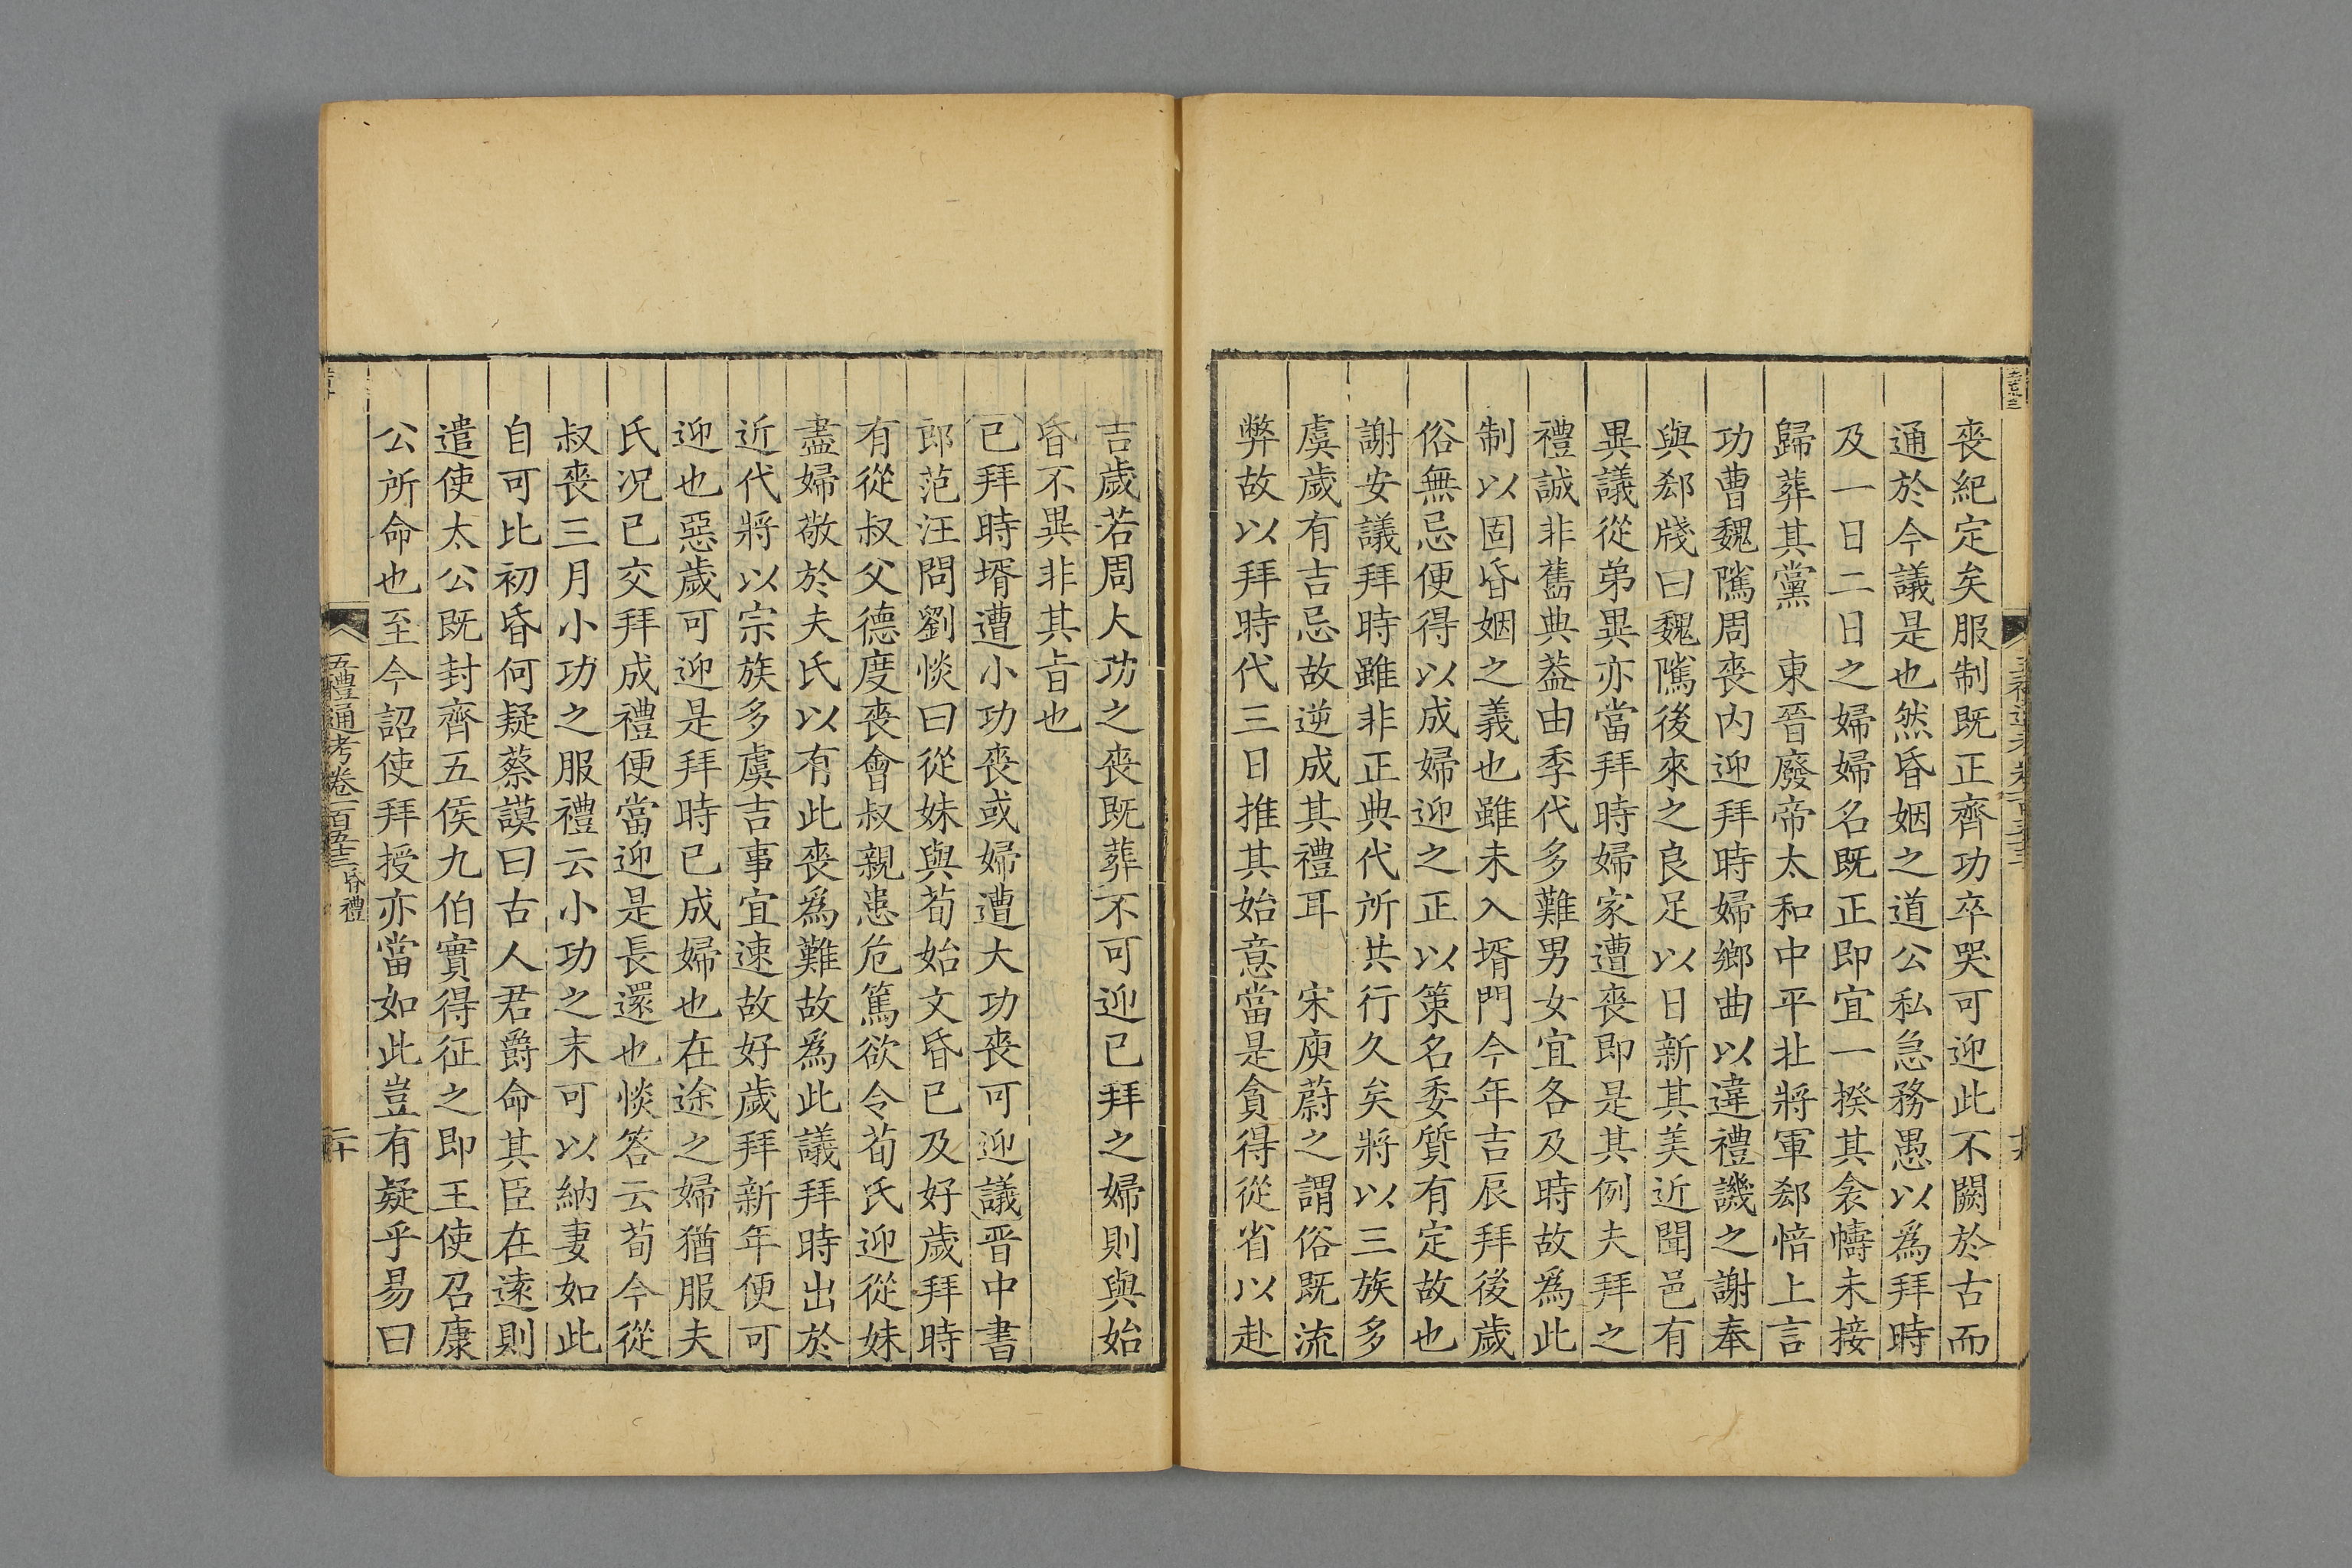 喪紀定矣服制既正齊功卒哭可迎此不闕於古而
通於今議是也然昏姻之道公私急務愚以爲拜時
及一日二日之婦婦名既正即宜一揆其衾幬未接
歸葬其黨 東晉廢帝太和中平北將軍郄愔上言
功曹魏隲周喪内迎拜時婦鄉曲以違禮譏之謝奉
與郄牋曰魏隲後來之良足以日新其美近聞邑有
異議從弟異亦當拜時婦家遭喪即是其例夫拜之
禮誠非舊典葢由季代多難男女宜各及時故爲此
制以固昏姻之義也雖未入壻門今年吉辰拜後歲
俗無忌便得以成婦迎之正以策名委質有定故也
謝安議拜時雖非正典代所共行久矣將以三族多
虞歲有吉忌故逆成其禮耳 宋庾蔚之謂俗既流
弊故以拜時代三日推其始意當是貪得從省以赴
吉歲若周大功之喪既葬不可迎已拜之婦則與始
昏不異非其旨也
已拜時壻遭小功喪或婦遭大功喪可迎議晋中書
郎范汪問劉惔曰從妹與荀始文昏已及好歲拜時
有從叔父德度喪會叔親患危篤欲令荀氏迎從妹
盡婦敬於夫氏以有此喪爲難故爲此議拜時出於
近代將以宗族多虞吉事宜速故好歲拜新年便可
迎也惡歲可迎是拜時已成婦也在途之婦猶服夫
氏况已交拜成禮便當迎是長還也惔答云荀今從
叔喪三月小功之服禮云小功之末可以納妻如此
自可比初昏何疑蔡謨曰古人君爵命其臣在遠則
遣使太公既封齊五侯九伯實得征之即王使召康
公所命也至今詔使拜授亦當如此豈有疑乎易曰
五禮通考卷一百五十三昏禮
二十